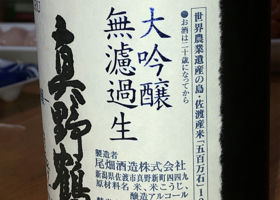 世界農業遺産の島・佐渡産米「五百万石」1
●お酒は二十歳になってから
大吟醸
無濾過生
真野鶴
製造者
尾畑酒造株式会社
新潟県佐渡市真野新町四四九
原材料名 米、米こうじ、
醸造アルコール